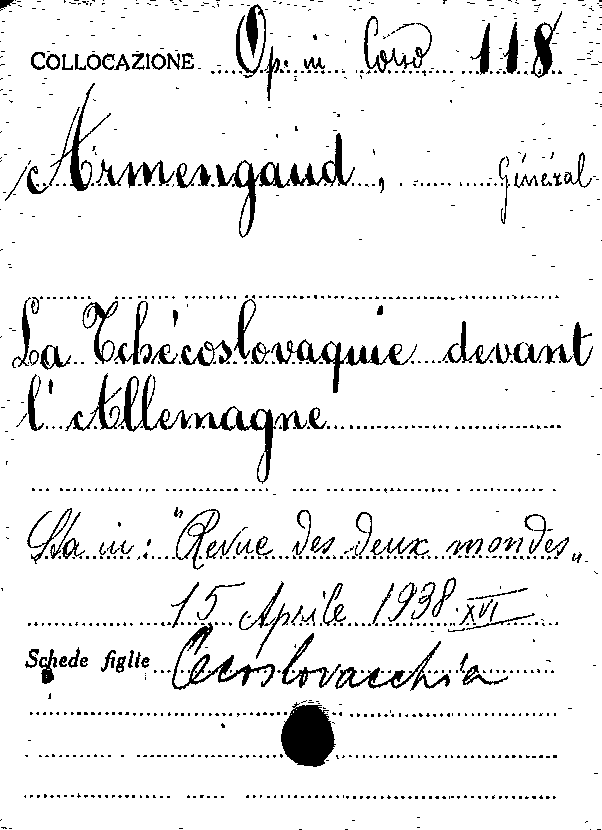 COLLOCAZIONE Op. in Corso 118
Armengaud, Général
La Tchécoslovaquie devant
l'Allemagne
Sta in: "Revue des deux mondes„
15 Aprile 1938.XVI
Schede figlie Cecoslovacchia